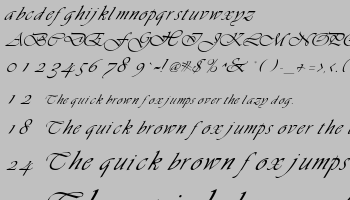 abcdefghijklmnopqrstuvwxyz
ABCDEFGHIJKLMNOPQ
0123456789.,!@#$%^&*()-_+=
12 The quick brown fox jumps over the lazy dog.
18 The quick brown fox jumps over the
24 The quick brown fox jumps